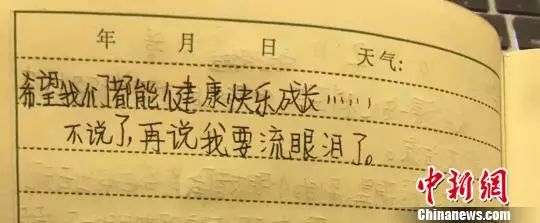 年 月 日 天气:
希望我们都能健康快乐成长……
不说了,再说我要流眼泪了。
中新网
Chinanews.com